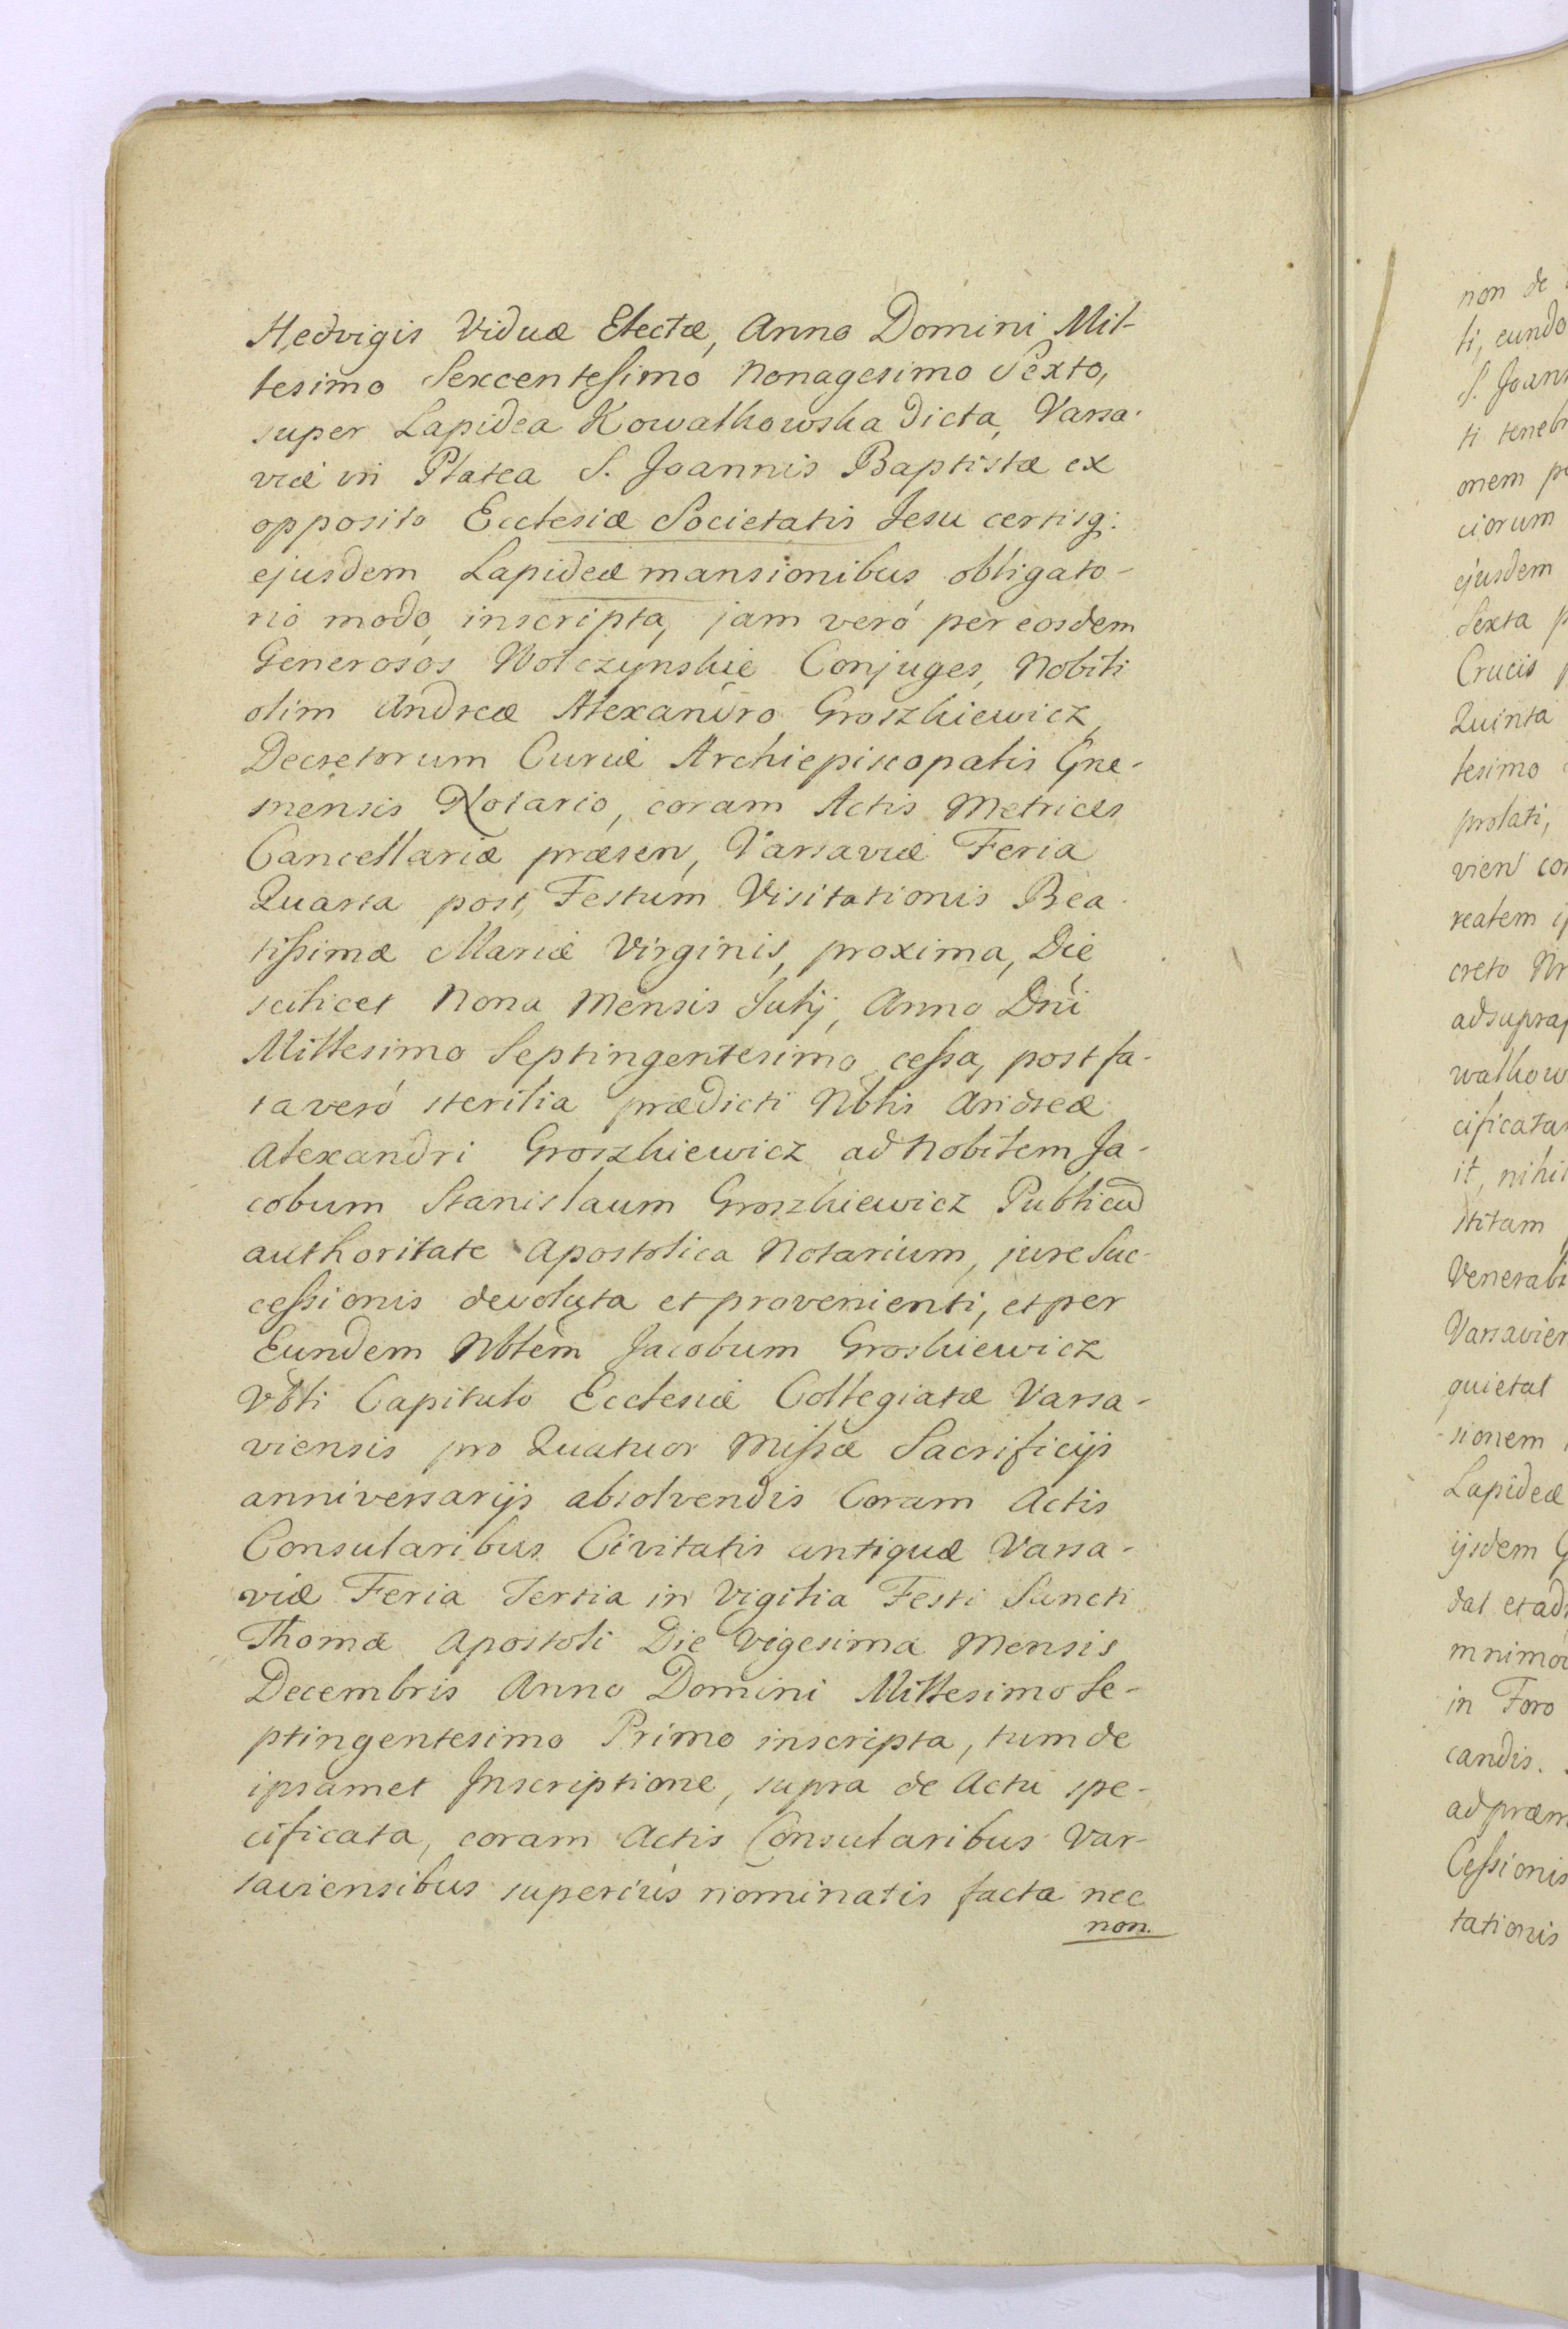 Hedvigis Viduæ Electæ, Anno Domini Mil-
lesimo Sexcentesimo Nonagesimo Sexto,
super Lapidea Kowalkowska dicta, Varsa-
viæ in Platea S. Joannis Baptistæ ex
opposito Ecclesiæ Societatis Jesu certisq:
ejusdem Lapideæ mansionibus obligato-
rio modo, inscripta, jam veró per eosdem
Generosos Wolczynskie Conjuges, Nobili
olim Andreæ Alexandro Groszkiewicz,
Decretorum Curiæ Archiepiscopalis Gne-
snensis Notario, coram Actis Metrices
Cancellariæ præsen, Varsaviæ Feria
Quarta post Festum Visitationis Bea-
tissimæ Mariæ Virginis, proxima, Die
scilicet Nona Mensis Julij, Anno Dni
Millesimo Septingentesimo cessa, post fa-
ta veró sterilia prædicti Nblis Andreæ
Alexandri Groszkiewicz ad Nobilem Ja-
cobum Stanislaum Groszkiewicz Publicũ
authoritate Apostolica Notarium, jure Suc-
cessionis devoluta et provenienti, et per
Eundem Nblem Jacobum Groskiewicz
Vbli Capitulo Ecclesiæ Collegiatæ Varsa-
viensis pro Quatuor Missæ Sacrificijs
anniversarijs absolvendis Coram Actis
Consularibus Civitatis antiquæ Varsa-
viæ Feria Tertia in Vigilia Festi Sancti
Thomæ Apostoli Die Vigesima Mensis
Decembris Anno Domini Millesimo Se-
ptingentesimo Primo inscripta, tum de
ipsamet Inscriptione, supra de Actu spe-
cificata, coram Actis Consularibus Var-
saviensibus superiús nominatis facta nec
non.
non de
ti, eundo
S. Joann
ti teneb
onem p
ciorum
ejusdem
Sexta p
Crucis p
Quinta
tesimo
prolati,
vien co
reatem i
creto Nr
ad suprap
walkow
cificata
it, nihi
stitam
Venerabi
Varsavien
quietat
sionem
Lapideæ
ijsdem G
dat et ad
mnimo
in Foro
candis.
ad præm
Cessionis
tationis